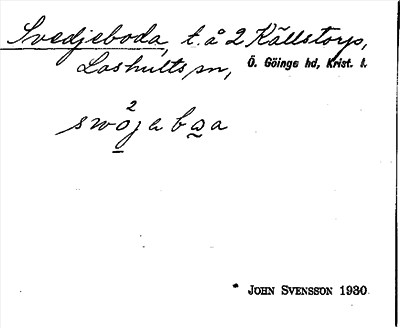 Svedjeboda, t. å 2 Källstorp,
Loshults sn, Ö. Göinge hd, Krist. l.
2
swojabaa
* JOHN SVENSSON 1930